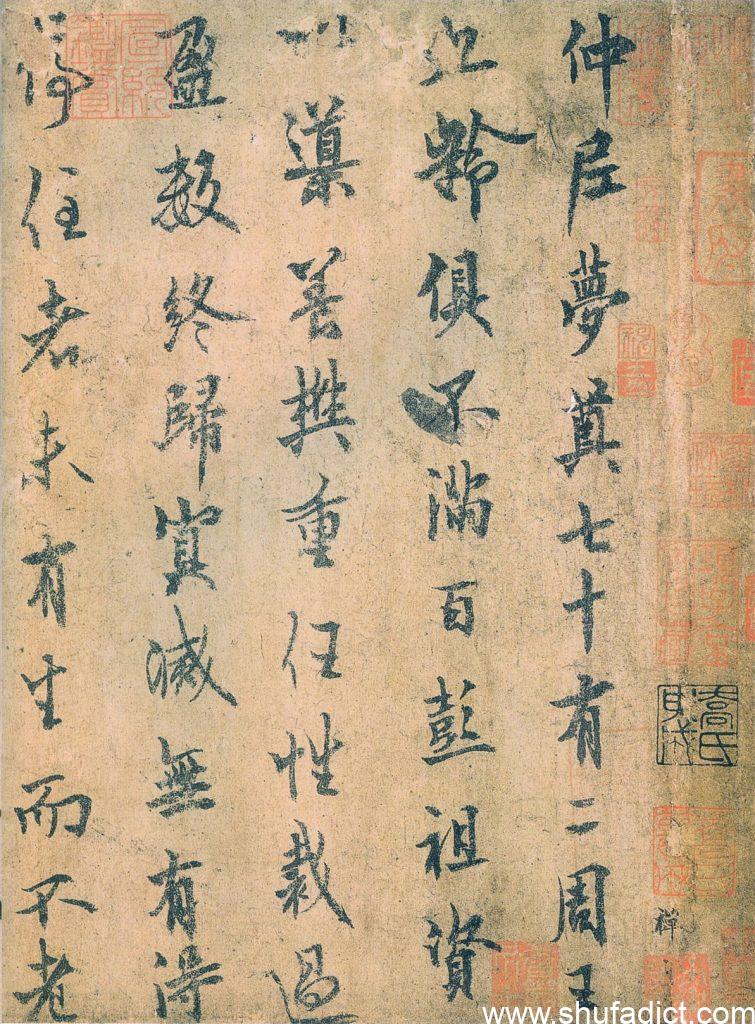 仲尼夢奠七十有二周王
九齡俱不滿百彭祖資
以導養樊重任性裁過
盈數終歸冥滅無有得
停住者未有生而不老
www.shufadict.com